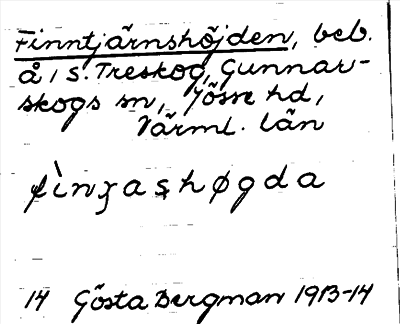 Finntjärnshöjden, beb.
å 1 S. Treskog, Gunnar-
skogs sn, Jösse hd,
Värml. län
fìnʒasho̸gda
14 Gösta Bergman 1913-14